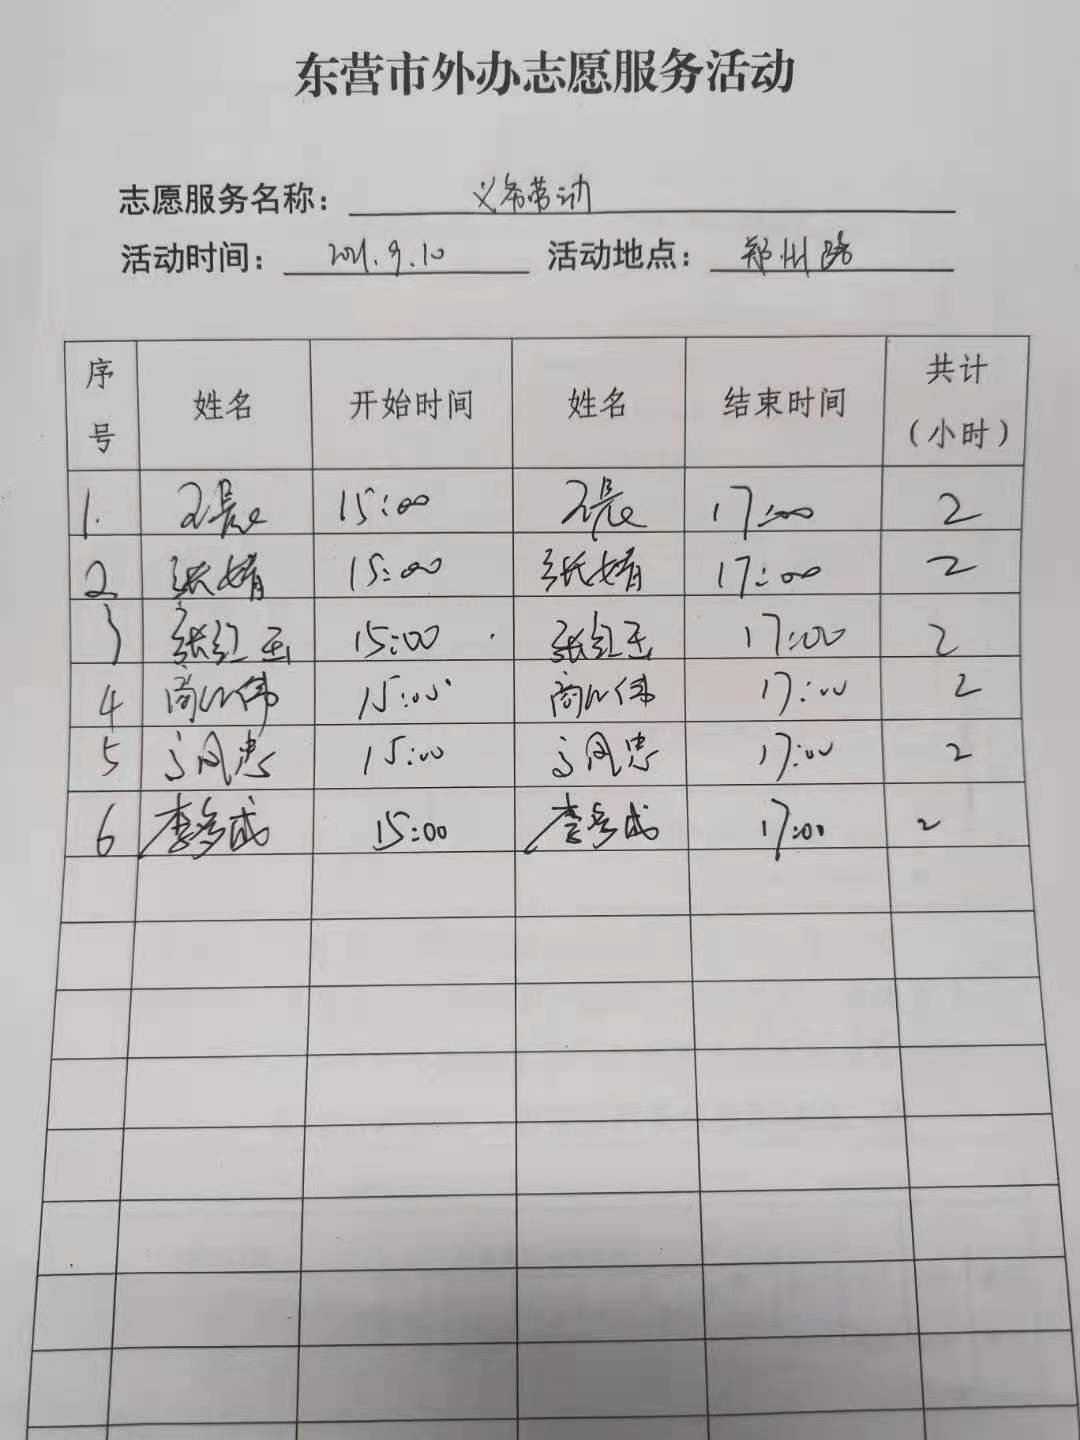 东营市外办志愿服务活动
志愿服务名称： 义务劳动
活动时间： 2021.9.10 活动地点： 郑州路
序号 姓名 开始时间 姓名 结束时间 共计（小时）
1. 15:00 17:00 2
2 张婧 15:00 张婧 17:00 2
3 张红玉 15:00 张红玉 17:00 2
4 15:00 17:00 2
5 15:00 17:00 2
6 15:00 17:00 2